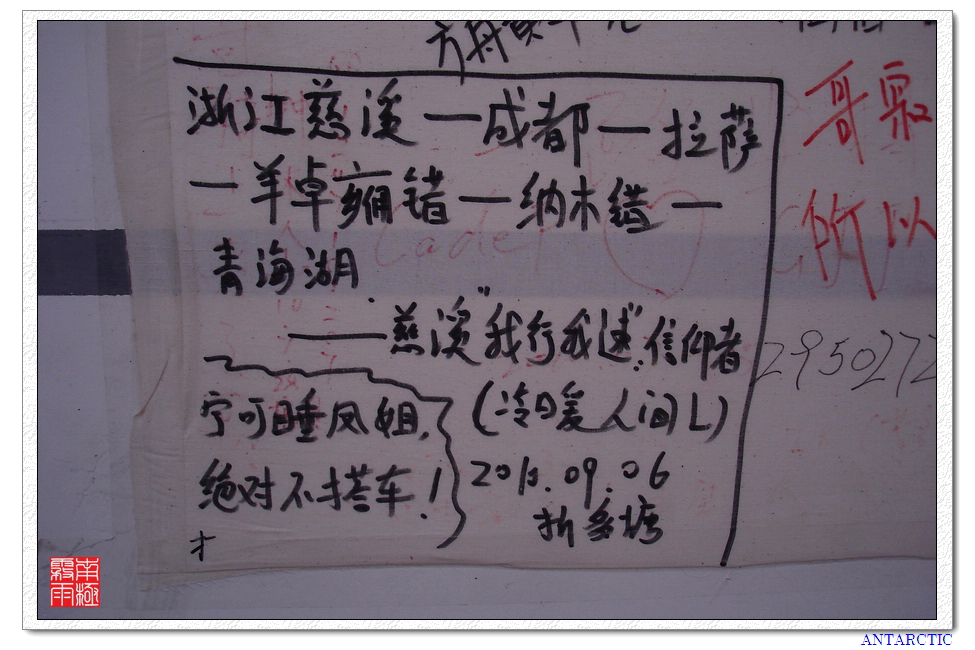 浙江慈溪—成都—拉萨
—羊卓雍错—纳木错—
青海湖.
——慈溪"我行我速"信仰者
宁可睡凤姐,
绝对不搭车!
(冷暖人间L)
2010.09.06
折多塘
才
哥
的以
2950272
南極
雨
ANTARCTIC